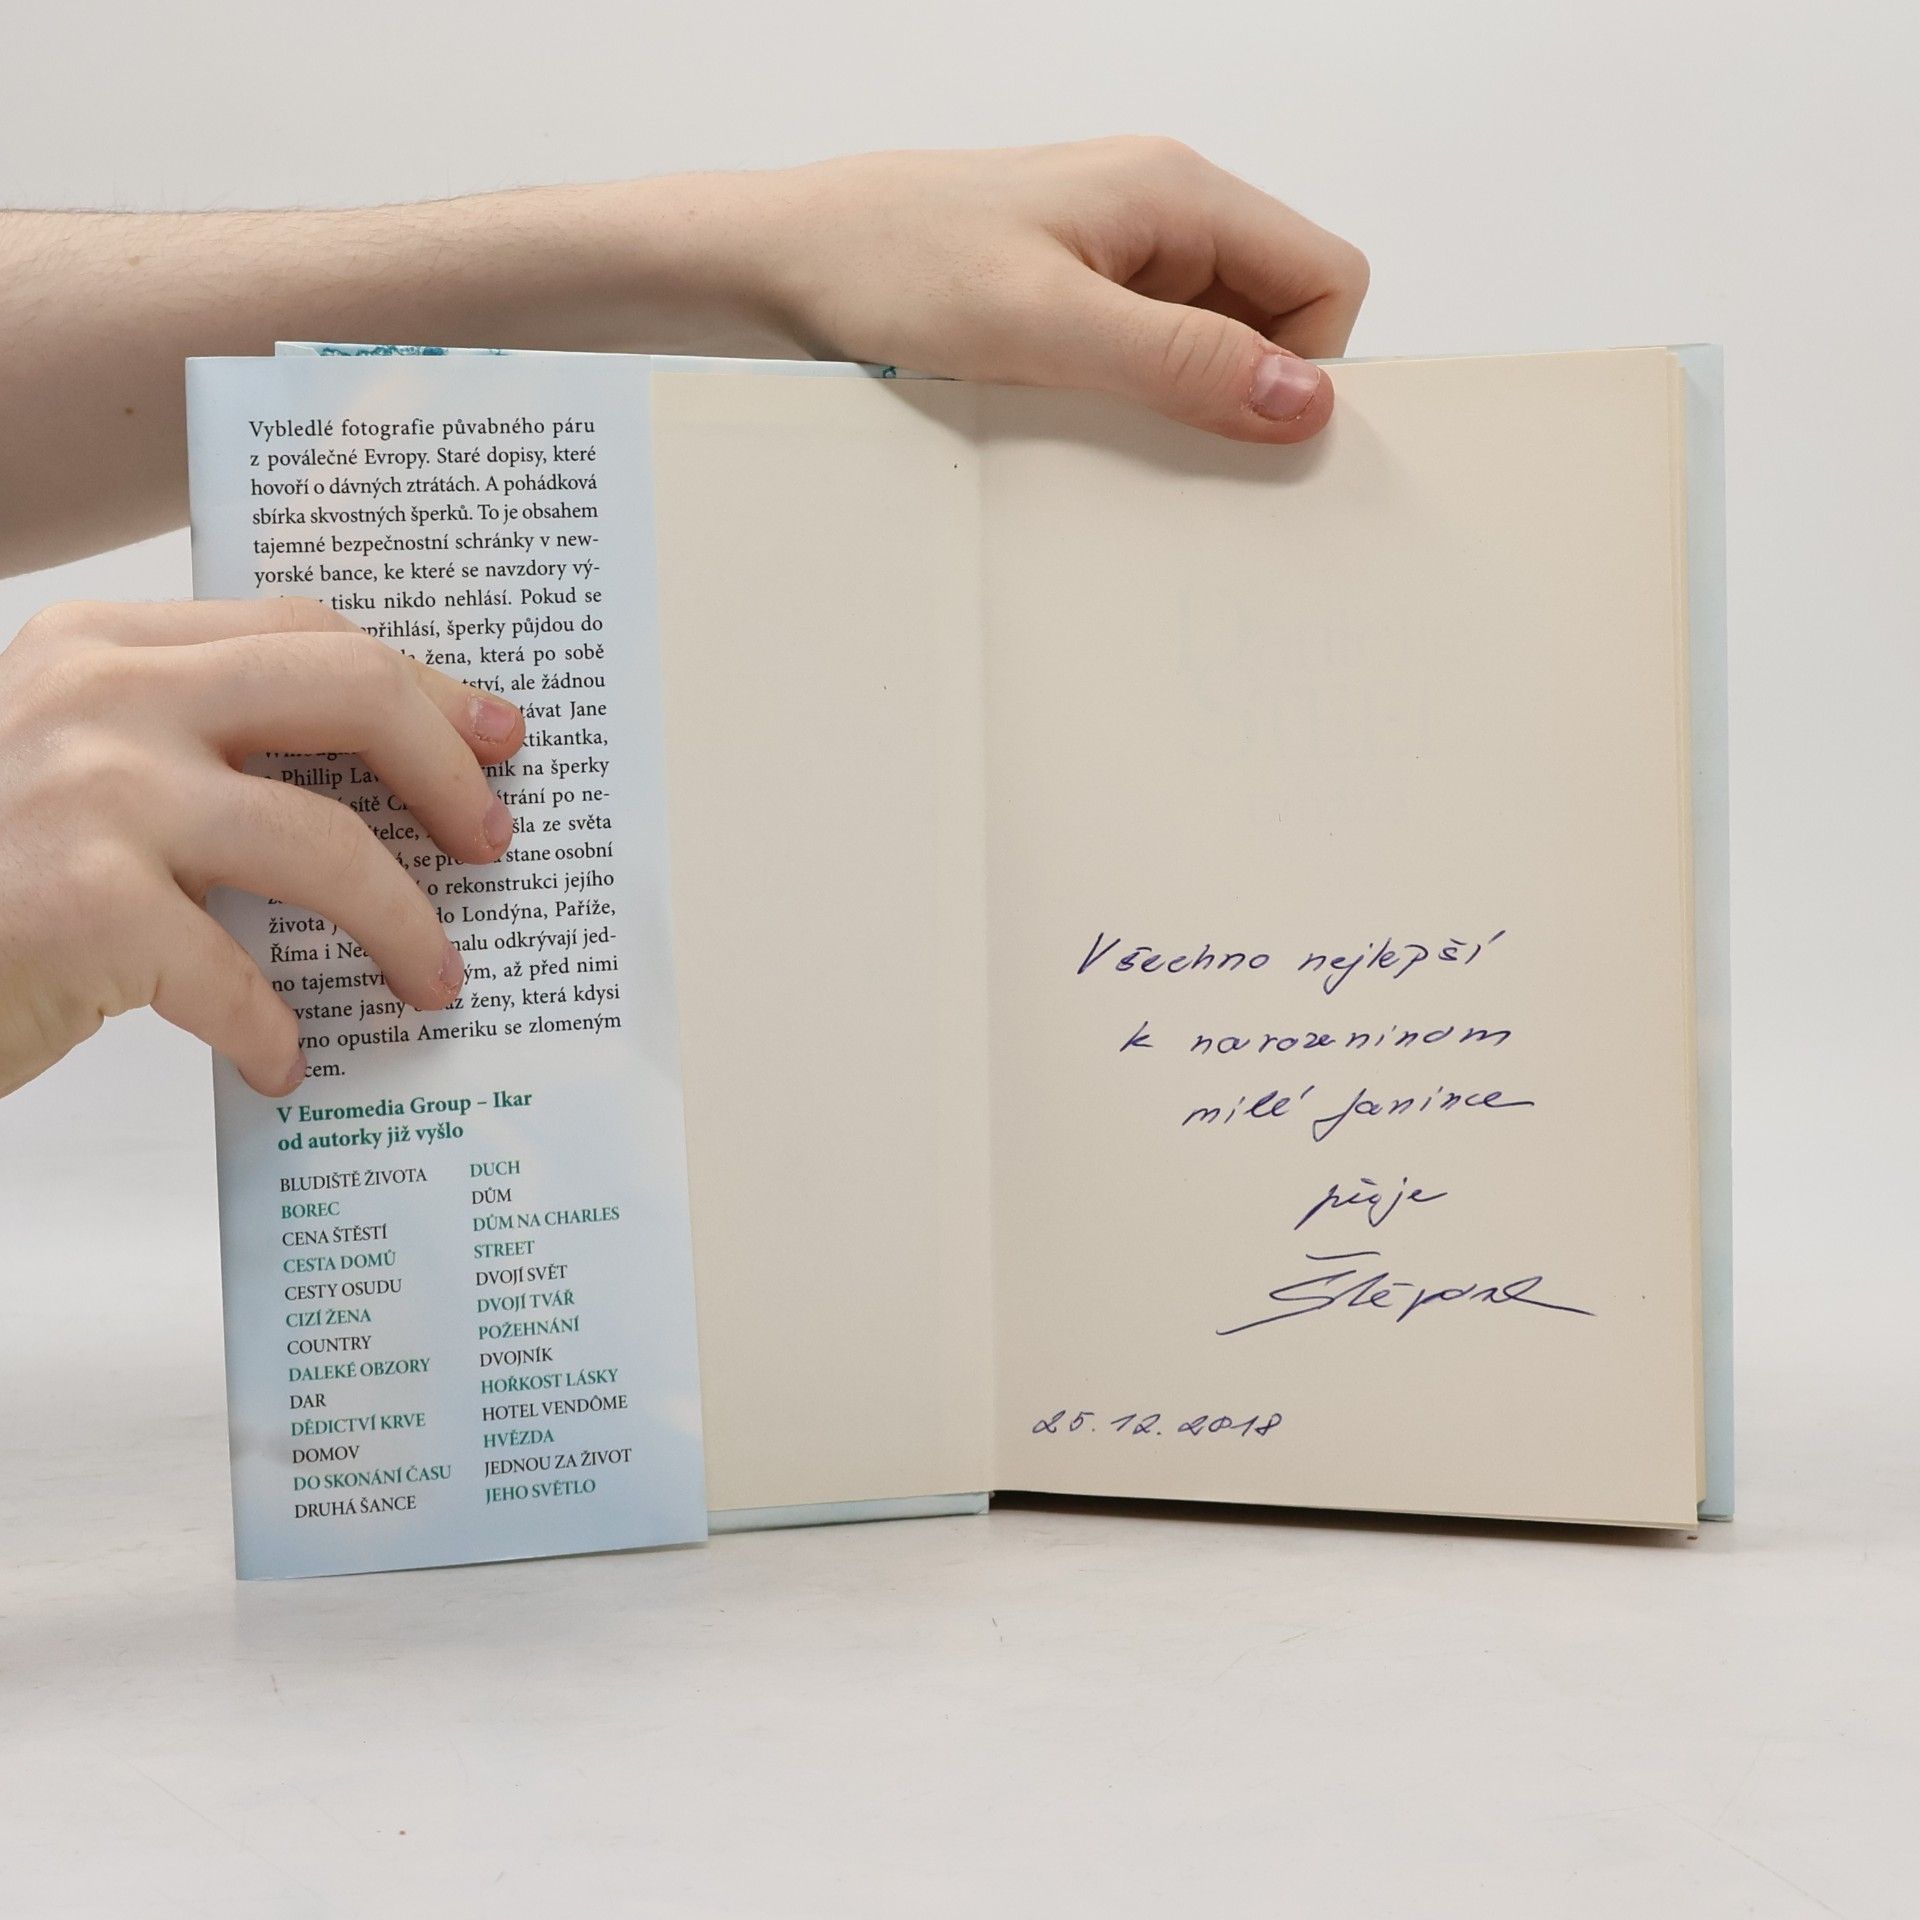 Vybledlé fotografie půvabného páru
z poválečné Evropy. Staré dopisy, které
hovoří o dávných ztrátách. A pohádková
sbírka skvostných šperků. To je obsahem
tajemné bezpečnostní schránky v new-
yorské bance, ke které se navzdory vý-
tisku nikdo nehlásí. Pokud se
šperky půjdou do
žena, která po sobě
ale žádnou
Jane
Phillip
na šperky
sítě
po ne-
ze světa
se stane osobní
o rekonstrukci jejího
života do Londýna, Paříže,
Říma i odkrývají jed-
no tajemství až před nimi
jasný ženy, která kdysi
opustila Ameriku se zlomeným
V Euromedia Group – Ikar
od autorky již vyšlo
BLUDIŠTĚ ŽIVOTA
BOREC
CENA ŠTĚSTÍ
CESTA DOMŮ
CESTY OSUDU
CIZÍ ŽENA
COUNTRY
DALEKÉ OBZORY
DAR
DĚDICTVÍ KRVE
DOMOV
DO SKONÁNÍ ČASU
DRUHÁ ŠANCE
DUCH
DŮM
DŮM NA CHARLES
STREET
DVOJÍ SVĚT
DVOJÍ TVÁŘ
POŽEHNÁNÍ
DVOJNÍK
HOŘKOST LÁSKY
HOTEL VENDÔME
HVĚZDA
JEDNOU ZA ŽIVOT
JEHO SVĚTLO
Všechno nejlepší
k narozeninám
milé Janince
přeje
25.12.2018